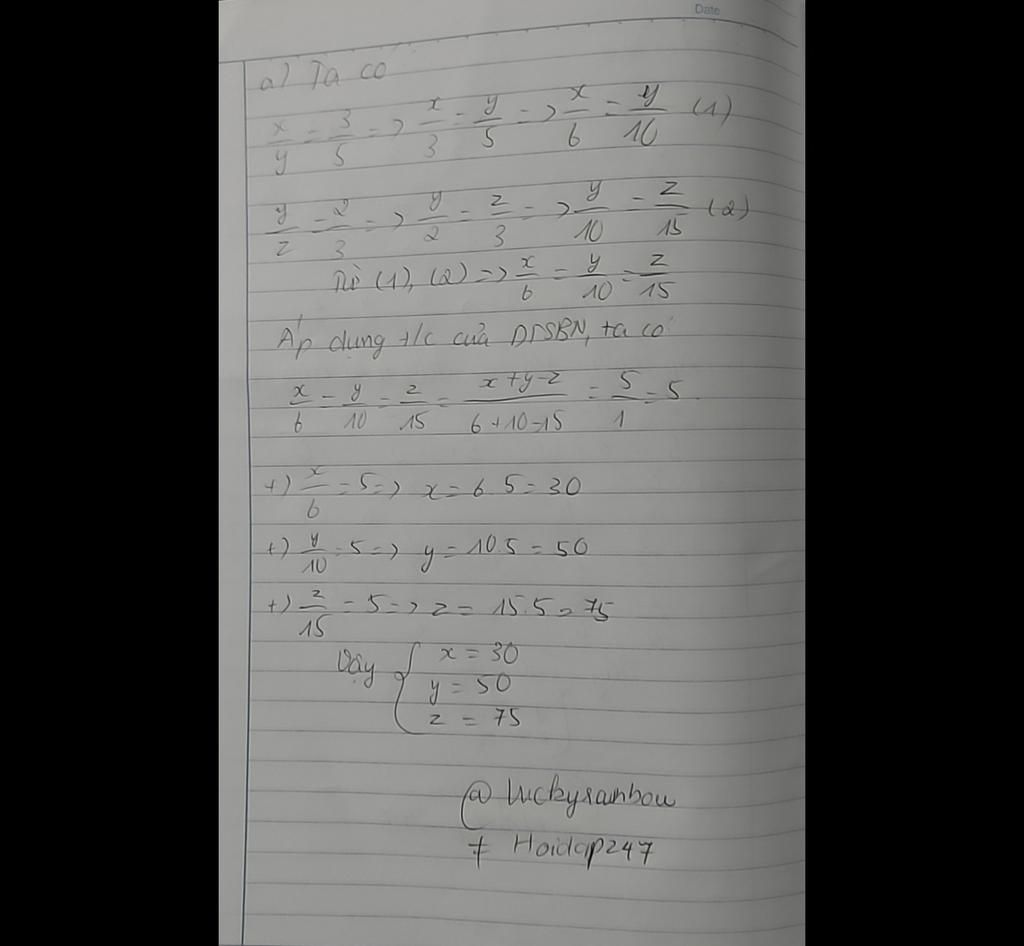 Date
a) Ta có
x/y = 3/5 => x/3 = y/5 => x/6 = y/10 (1)
y/z = 2/3 => y/2 = z/3 => y/10 = z/15 (2)
Từ (1), (2) => x/6 = y/10 = z/15
Áp dụng t/c của DTSBN, ta có
x/6 = y/10 = z/15 = x+y-z/6+10-15 = 5/1 = 5
+) x/6 = 5 => x = 6.5 = 30
+) y/10 = 5 => y = 10.5 = 50
+) z/15 = 5 => z = 15.5 = 75
Vậy { x = 30
y = 50
z = 75
@ luckyrainbow
# Hoidap247